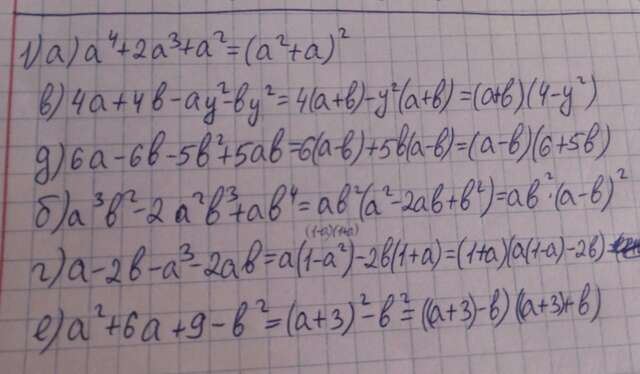 1) а) a⁴+2a³+a²=(a²+a)²
в) 4a+4в-ay²-вy²=4(a+в)-y²(a+в)=(a+в)(4-y²)
д) 6a-6в-5в²+5aв=6(a-в)+5в(a-в)=(a-в)(6+5в)
б) a³в²-2a²в³+aв⁴=aв²(a²-2aв+в²)=aв²·(a-в)²
(1-a)(1+a)
г) a-2в-a³-2aв=a(1-a²)-2в(1+a)=(1+a)(a(1-a)-2в)
е) a²+6a+9-в²=(a+3)²-в²=((a+3)-в)((a+3)+в)